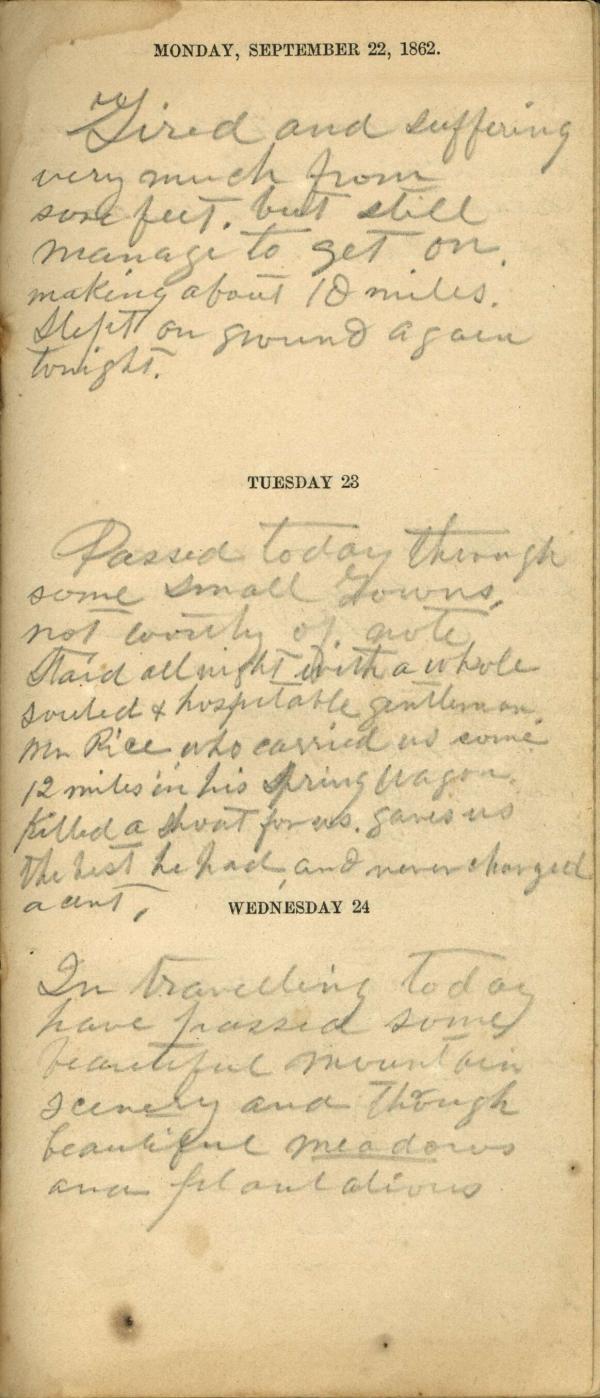 MONDAY, SEPTEMBER 22, 1862.
Tired and suffering
very much from
sore feet, but still
manage to get on,
making about 18 miles.
Slept on ground again
tonight.
TUESDAY 23
Passed today through
some small Towns,
not worthy of note,
Staid all night with a whole
souled & hospitable gentleman,
Mr Rice, who carried us some
12 miles in his Spring Wagon.
Killed a shoat for us. gave us
the best he had, and never charged
a cent,
WEDNESDAY 24
In travelling today
have passed some
beautiful mountain
scenery and though
beautiful meadows
and plantations